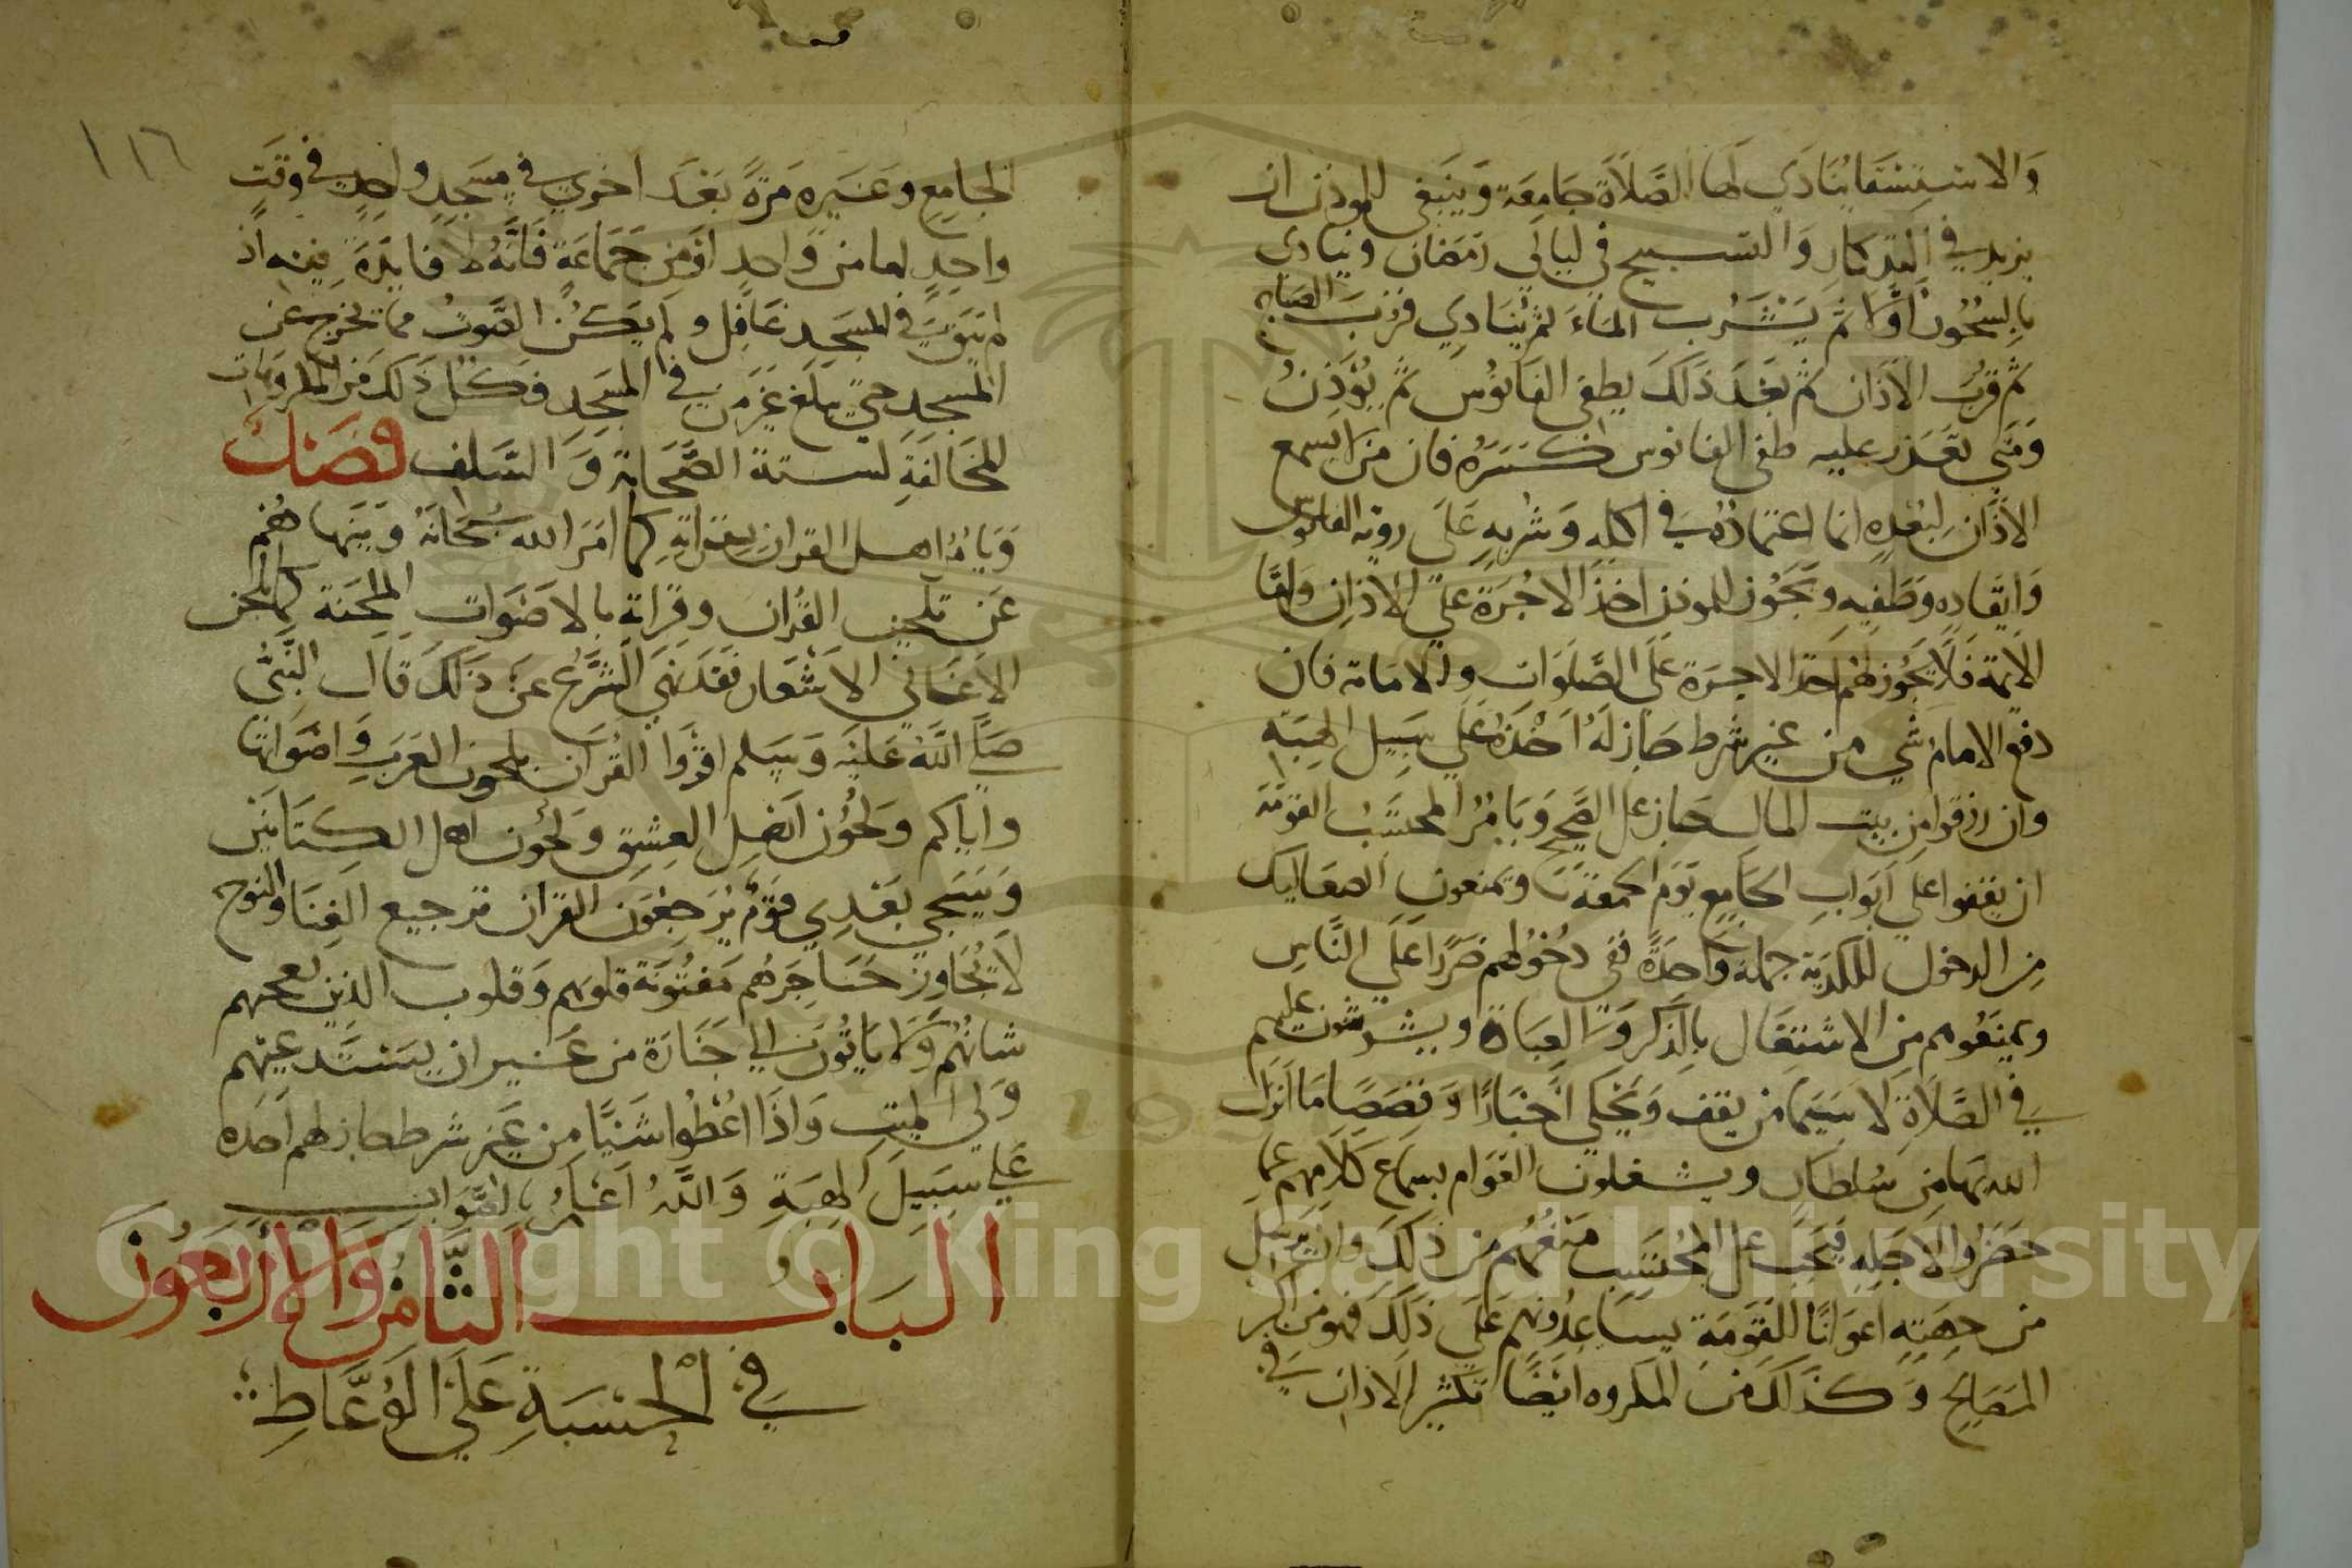 والاستسقا ينادي لها الصلاة جامعة وينبغي للموذن ان
يزيد في التذكار والتسبيح في ليالي رمضان وينادي
بالسحور اولا ثم يشرب الماء ثم ينادي قرب الصباح
ثم قرب الاذان ثم بعد ذلك يطفي الفانوس ثم يؤذن
ومتي تعذر عليه طفي الفانوس كسره فان من لا يسمع
الاذان لبعده انما اعتماده في اكله وشربه على روية الفانوس
وايقاده وطفيه ويجوز للموذن اخذ الاجرة علي الاذان واما
الايمة فلا يجوز لهم اخذ الاجرة على الصلوات والامامة فان
دفع الامام شي من غير شرط جاز له اخذه علي سبيل الهبة
وان رزقوا من بيت المال جاز على الصحيح ويامر المحتسب القومة
ان يقفوا علي ابواب الجامع يوم الجمعة ويمنعون الصعاليك
من الدخول للكدية جملة واحدة ففي دخولهم ضررا على الناس
ويمنعوهم من الاشتغال بالذكر والعبادة ويشوشون عليهم
في الصلاة لا سيما من يقف ويحكي اخبارا وقصصا ما انزل
الله بها من سلطان ويشغلون العوام بسماع كلامهم عما
حضروا لاجله فيجب على المحتسب منعهم من ذلك وان يرسل
من جهته اعوانا للقومة يساعدونهم على ذلك فهو من اكبر
المصالح وكذلك من المكروه ايضا تكثير الاذان في
١١٦
الجامع وغيره مرة بعد اخري في مسجد واحد في وقت
واحد اما من واحد او من جماعة فانه لا فايدة فيه اذ
لم يبق في المسجد غافل ولم يكن الصوت مما يخرج عن
المسجد حتي يبلغ غير من في المسجد فكل ذلك من المكروهات
المخالفة لسنة الصحابة والسلف فصل
ويامر اهل القران بقراته كما امر الله سبحانه وينهاهم
عن تلحين القران وقراته بالاصوات الملحنة كما يلحن
الاغاني الاشعار فقد نهي الشرع عن ذلك قال النبي
صلي الله عليه وسلم اقروا القران بلحون العرب واصواتها
واياكم ولحون اهل العشق ولحون اهل الكتابين
وسيجي بعدي قوم يرجعون القران ترجيع الغنا والنوح
لا تجاوز حناجرهم مفتونة قلوبهم وقلوب الذين يعجبهم
شانهم ولا ياتون الي جنازة من غير ان يستدعيهم
ولي الميت واذا اعطوا شيئا من غير شرط جاز لهم اخذه
علي سبيل الهبة والله اعلم بالصواب
الباب الثامن والاربعون
في الحسبة على الوعاظ
Copyright © King Saud University